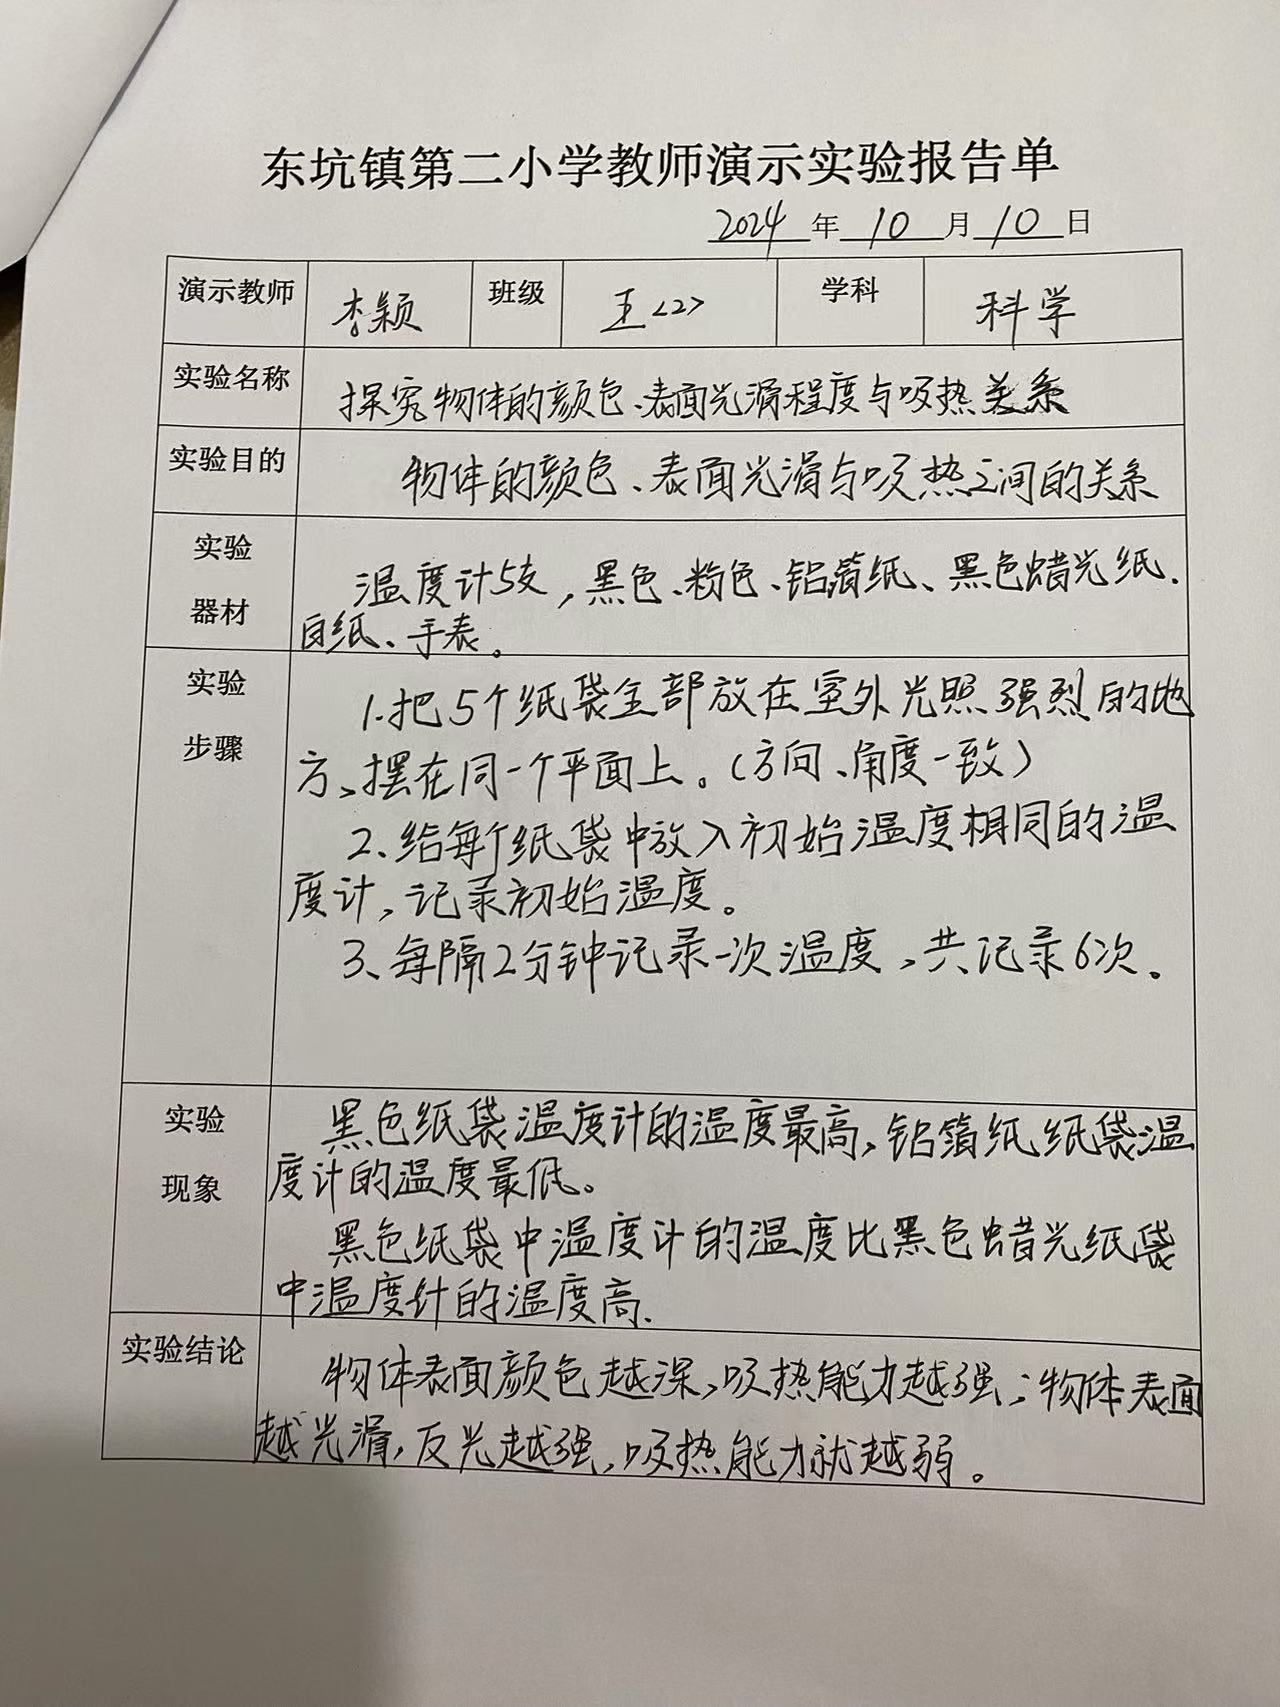 东坑镇第二小学教师演示实验报告单
2024年10月10日
演示教师 李颖 班级 五<2> 学科 科学
实验名称 探究物体的颜色、表面光滑程度与吸热关系
实验目的 物体的颜色、表面光滑与吸热之间的关系
实验
器材
温度计5支，黑色、粉色、铝箔纸、黑色蜡光纸、
白纸、手表。
实验
步骤
1.把5个纸袋全部放在室外光照强烈的地
方、摆在同一个平面上。（方向、角度一致）
2、给每个纸袋中放入初始温度相同的温
度计，记录初始温度。
3、每隔2分钟记录一次温度，共记录6次。
实验
现象
黑色纸袋温度计的温度最高，铝箔纸纸袋温
度计的温度最低。
黑色纸袋中温度计的温度比黑色蜡光纸袋
中温度计的温度高.
实验结论
物体表面颜色越深，吸热能力越强；物体表面
越光滑，反光越强，吸热能力就越弱。